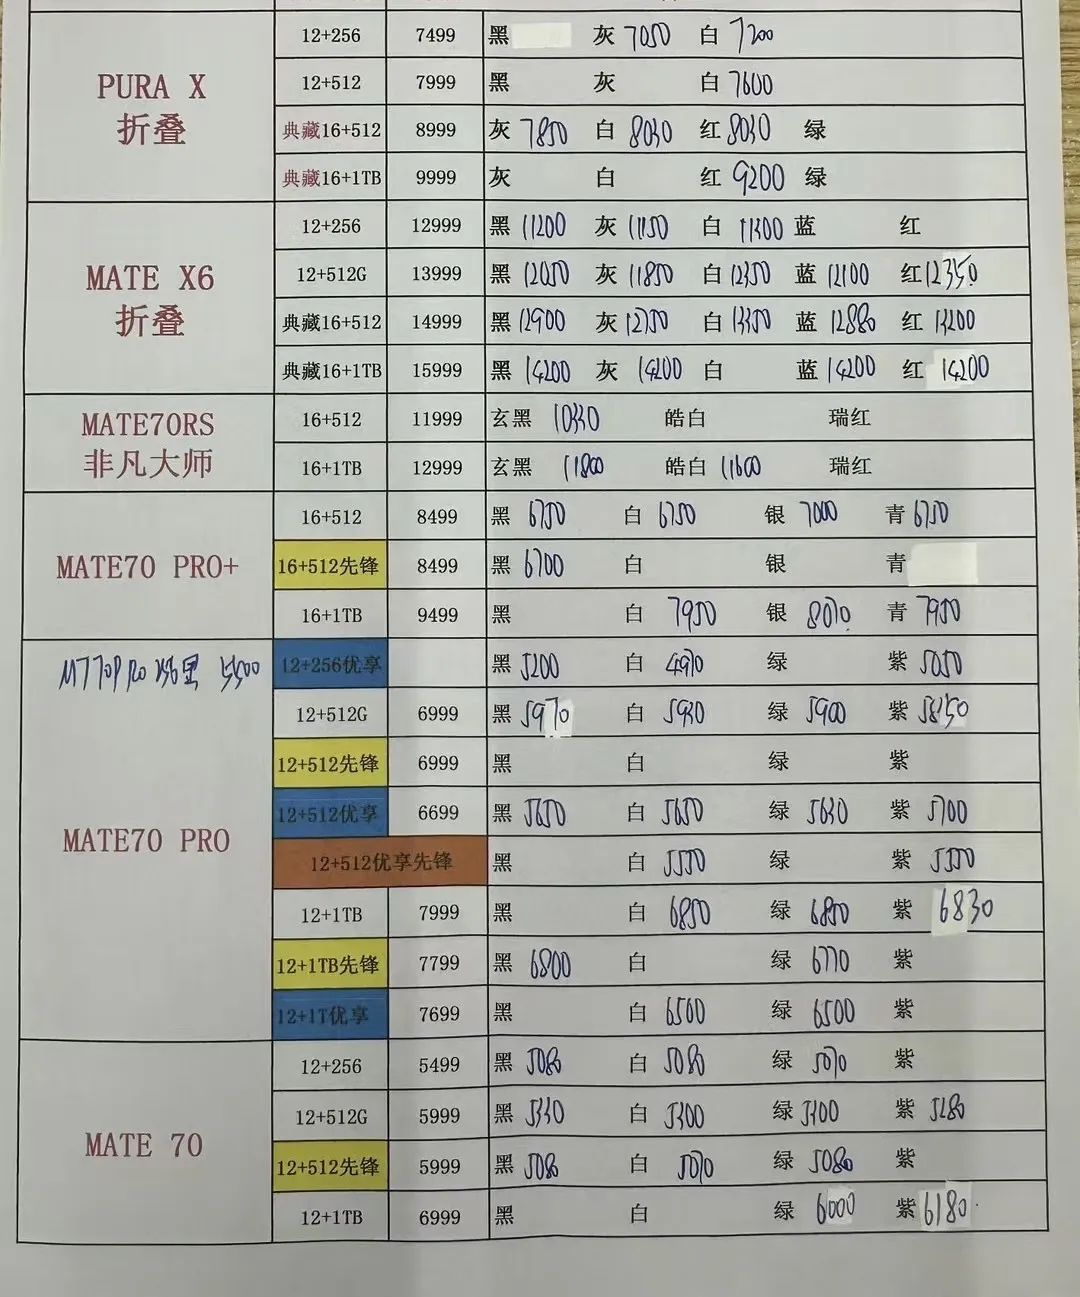 PURA X
折叠
12+256 7499 黑 灰 7050 白 7200
12+512 7999 黑 灰 白 7600
典藏16+512 8999 灰 7850 白 8030 红 8030 绿
典藏16+1TB 9999 灰 白 红 9200 绿
MATE X6
折叠
12+256 12999 黑 11200 灰 11150 白 11300 蓝 红
12+512G 13999 黑 12050 灰 11850 白 12350 蓝 12100 红 12350
典藏16+512 14999 黑 12900 灰 12750 白 13350 蓝 12880 红 13200
典藏16+1TB 15999 黑 14200 灰 14200 白 蓝 14200 红 14200
MATE70RS
非凡大师
16+512 11999 玄黑 10330 皓白 瑞红
16+1TB 12999 玄黑 11800 皓白 11600 瑞红
MATE70 PRO+
16+512 8499 黑 6750 白 6750 银 7000 青 6750
16+512先锋 8499 黑 6700 白 银 青
16+1TB 9499 黑 白 7950 银 8070 青 7950
5500
MATE70 PRO
12+256优享 黑 5200 白 4970 绿 紫 5050
12+512G 6999 黑 5970 白 5930 绿 5900 紫
12+512先锋 6999 黑 白 绿 紫
12+512优享 6699 黑 5650 白 5650 绿 5630 紫 5700
12+512优享先锋 黑 白 5550 绿 紫 5550
12+1TB 7999 黑 白 6850 绿 6850 紫 6830
12+1TB先锋 7799 黑 6800 白 绿 6770 紫
12+1T优享 7699 黑 白 6500 绿 6500 紫
MATE 70
12+256 5499 黑 5080 白 5080 绿 5070 紫
12+512G 5999 黑 5330 白 5300 绿 5300 紫 5280
12+512先锋 5999 黑 5080 白 5070 绿 5080 紫
12+1TB 6999 黑 白 绿 6000 紫 6180